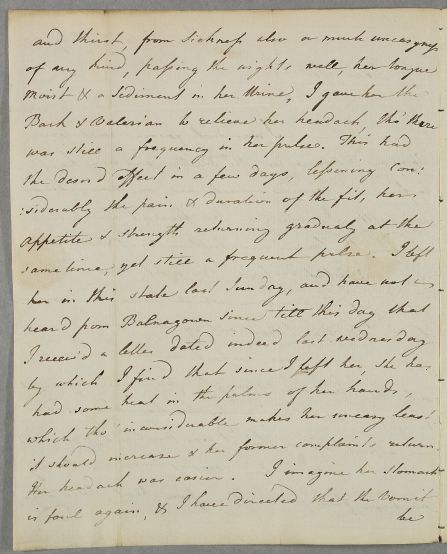 and thirst, from Sickness also or much uneasyness
of any kind, passing the nights well, her tongue
moist & a Sediment in her Urine, I gave her the
Bark & Valerian to relieve her headach, tho' there
was still a frequency in her pulse. This had
the desir'd effect in a few days, lessening con:
:siderably the pain & duration of the fit, her
appetite & strength returning gradualy at the
same time, yet still a frequent pulse. I left
her in this state last Sunday, and have not
heard from Balnagown since till this day that
I receiv'd a letter dated indeed last Wednesday
by which I find that since I left her, she has
had some heat in the palms of her hands,
which tho' inconsiderable makes her uneasy least
it should increase & her former complaints return.
Her headach was easier. I imagine her stomach
is foul again, & I have directed that the vomit
be